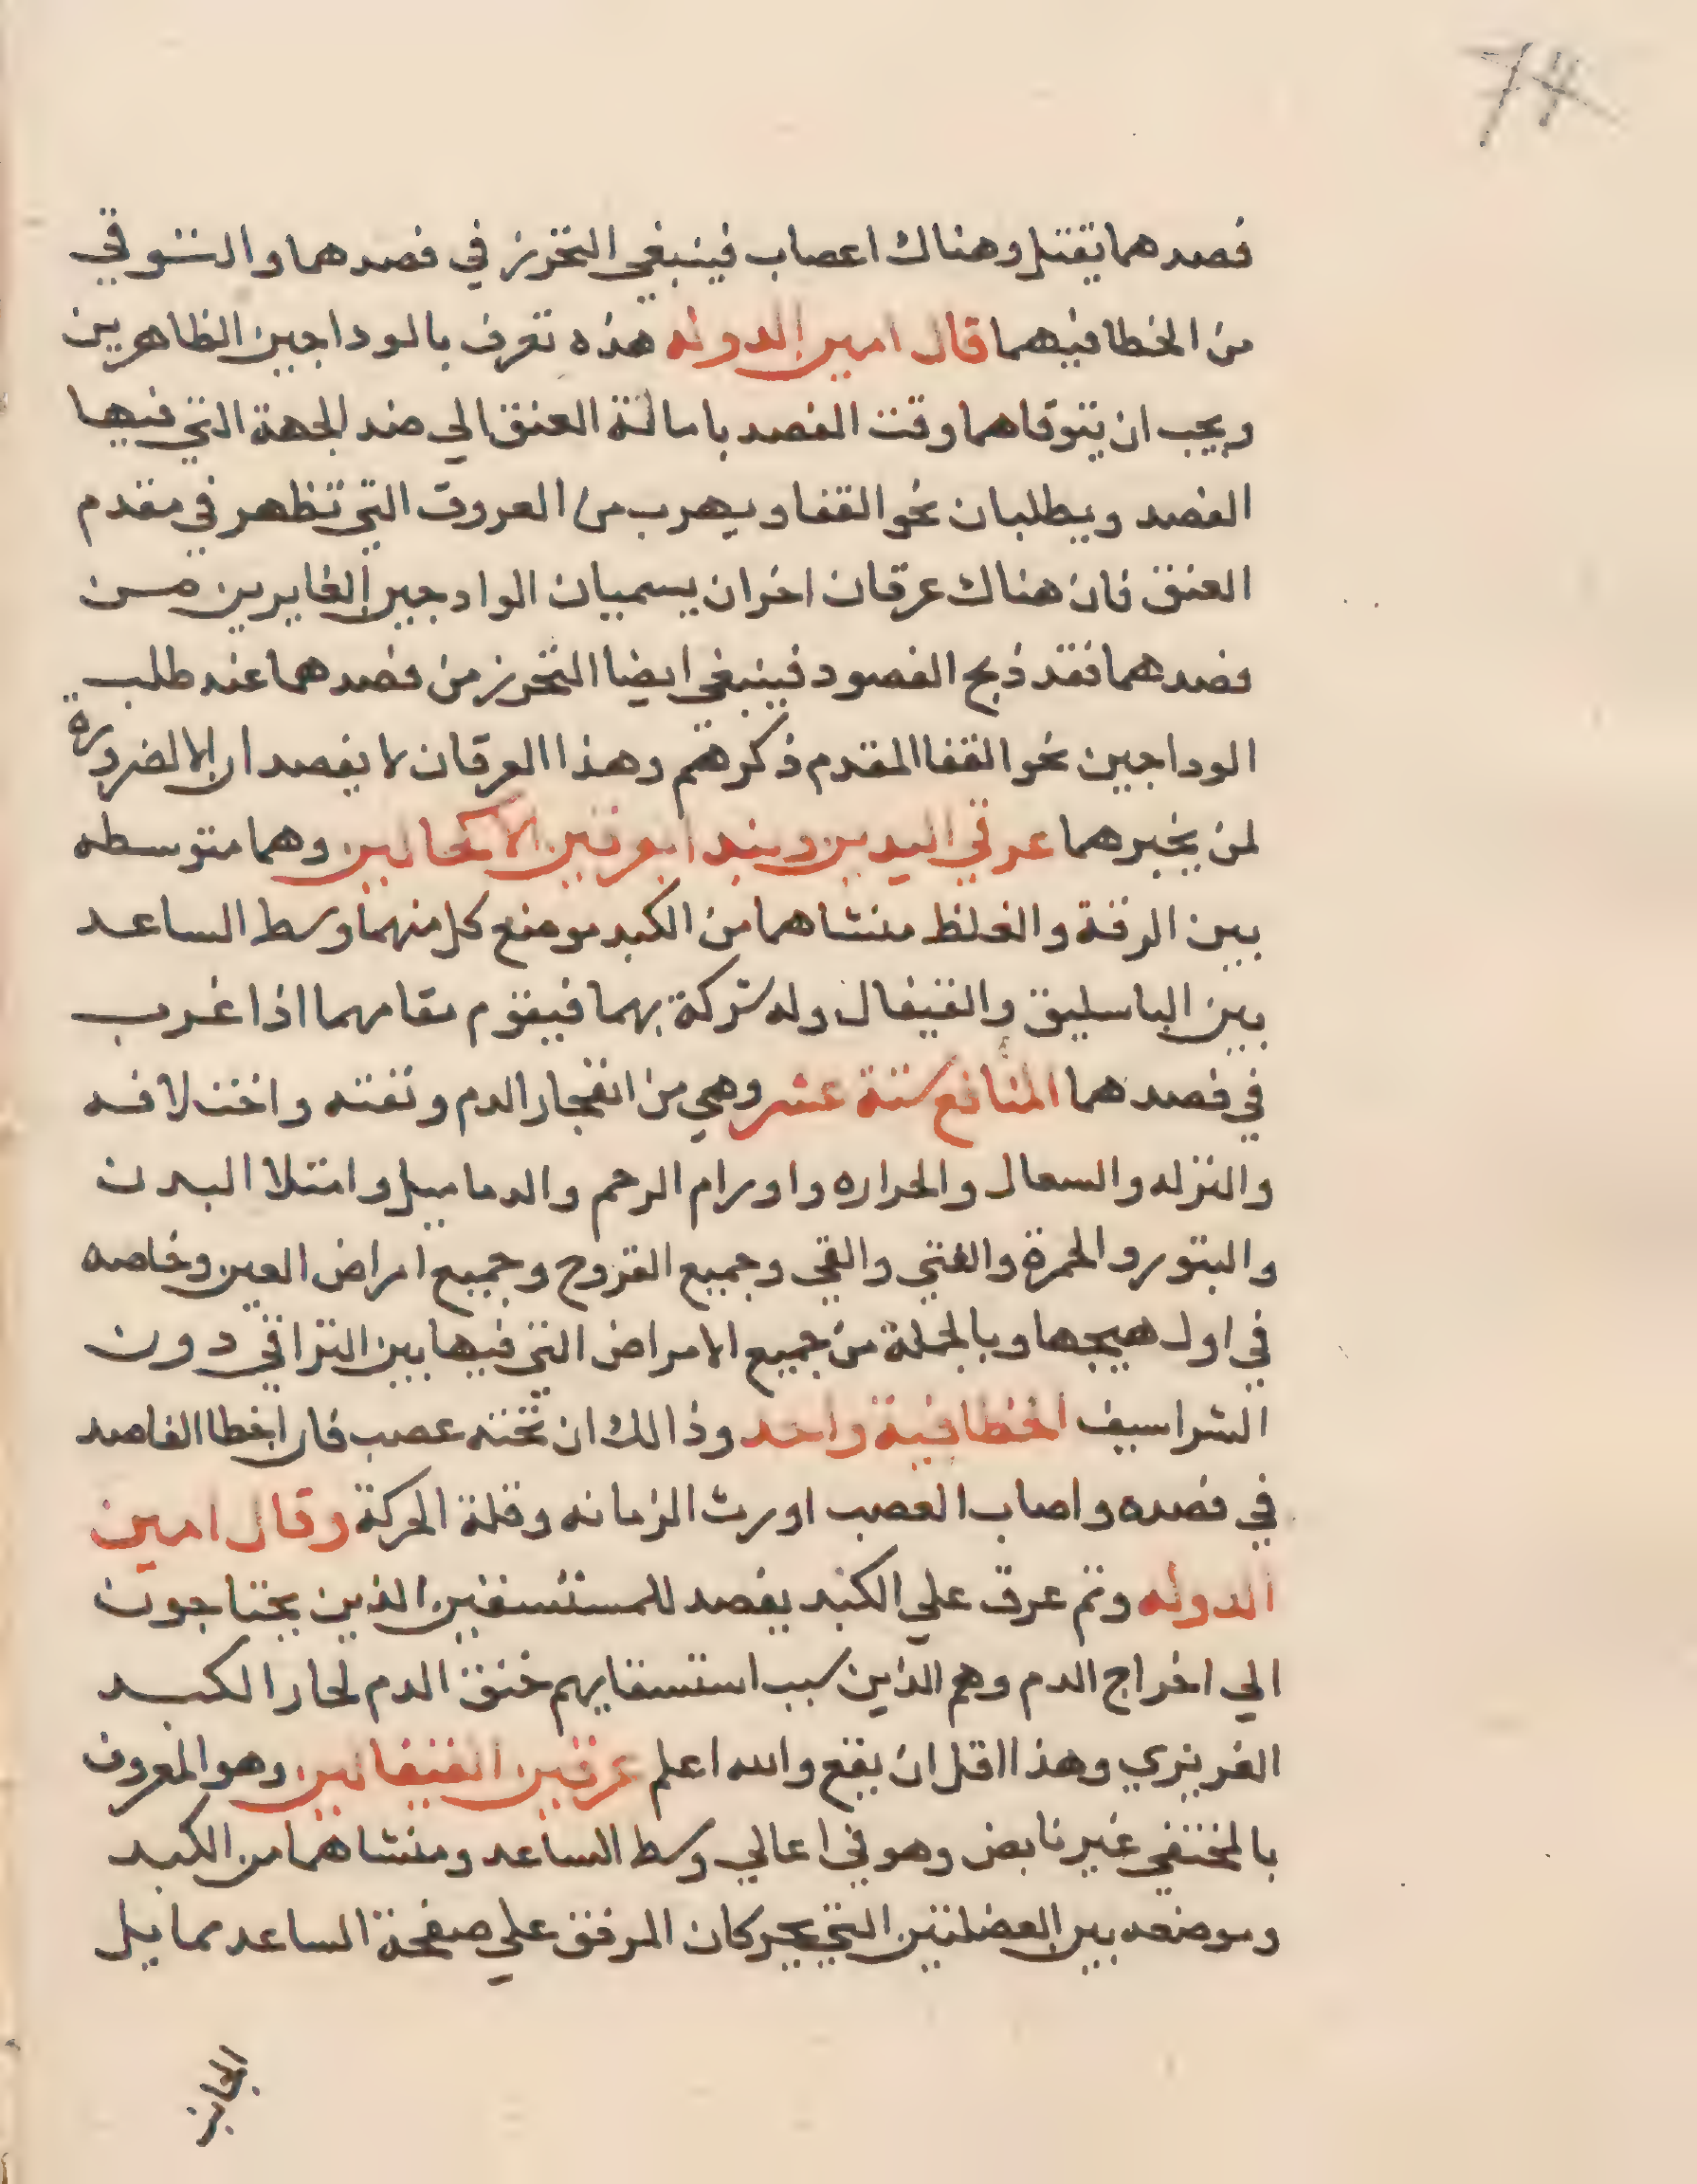 فصدهما يقتل وهناك اعصاب فينبغي التحرز في فصدهما والتوقي
من الخطا فيهما قال امين الدوله هذه تعرف بالوداجين الظاهرين
ويجب ان يتوقاهما وقت الفصد بامالة العنق الي ضد الجهة التي فيها
الفصد ويطلبان نحو القفا ويهرب من العروق التي تظهر في مقدم
العنق فان هناك عرقان اخران يسميان الوادجين الغايرين من
فصدهما فقد ذبح المفصود فينبغي ايضا التحرز من فصدهما عند طلب
الوداجين نحو القفا المقدم ذكرهم وهذا العرقان لا يفصدان الا لضرورة
لمن يخبرهما عرقي اليدين ويبدا بعرقين الاكحالين وهما متوسطه
بين الرقة والغلظ منشاهما من الكبد موضع كل منهما وسط الساعد
بين الباسليق والقيفال وله شركة بهما فيقوم مقامهما اذا غرب
في فصدهما المنافع ستة عشر وهي من انفجار الدم ونفته واختلافه
والنزله والسعال والحراره واورام الرحم والدماميل وامتلا البدن
والبتور والحمرة والغتي والقي وجميع القروح وجميع امراض العين وخاصه
في اول هيجها وبالجملة من جميع الامراض التي فيها بين التراقي دون
الشراسيف الخطا فية واحد وذالك ان تحته عصب فان اخطا الفاصد
في فصده واصاب العصب اورث الزمانه وقلة الحركة وقال امين
الدوله وتم عرق علي الكبد يفصد للمستسقين الذين يحتاجون
الي اخراج الدم وهم الذين سبب استسقايهم خنق الدم لحار الكبد
الغريزي وهذا اقل ان يقع والله اعلم عرقين القيفالين وهو المعروف
بالمختفي غير نابض وهو في اعالي وسط الساعد ومنشاهما من الكبد
وموضعه بين العضلتين التي يحركان المرفق علي صفحة الساعد مما يلي